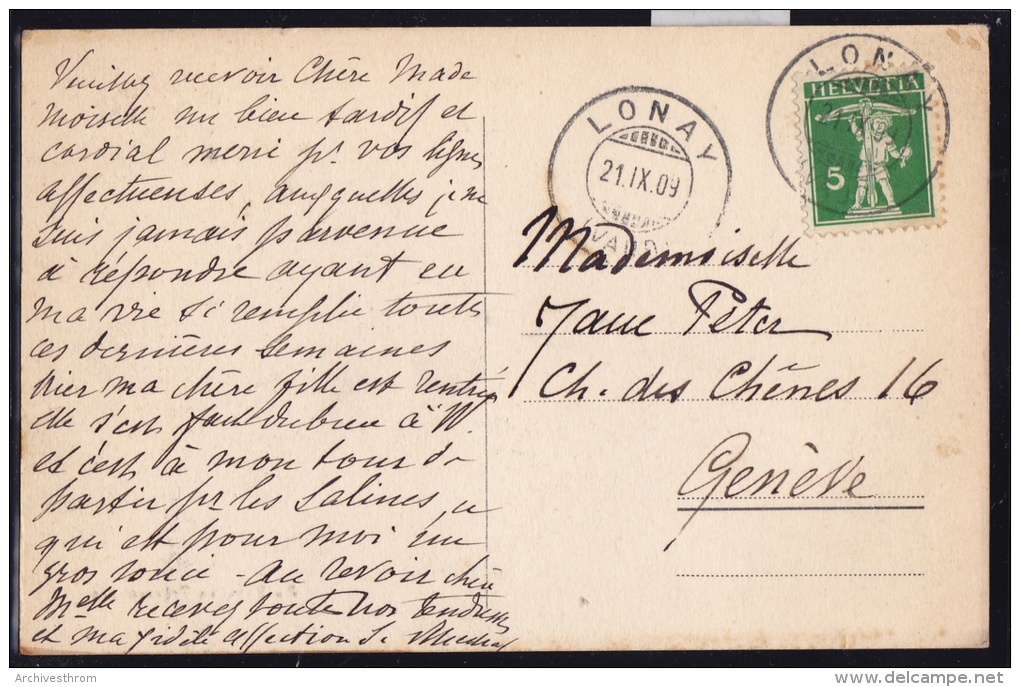 Veuillez recevoir Chère Made
moiselle un bien tardif et
cordial merci pr. vos lignes
affectueuses, auxquelles je ne
suis jamais parvenue
à répondre ayant eu
ma vie si remplie toutes
ces dernières semaines
hier ma chère fille est rentrée
elle s'est fait du bien à W.
et c'est à mon tour de
partir pr les Salines, ce
qui est pour moi un
gros souci - au revoir chère
Melle recevez toute nos tendresses
et ma fidèle affection
LONAY
21.IX.09
(VAUD)
LONAY
HELVETIA
5
Mademoiselle
Jane Peter
Ch. des Chênes 16
Genève
Archivesthrom
www.delcampe.net